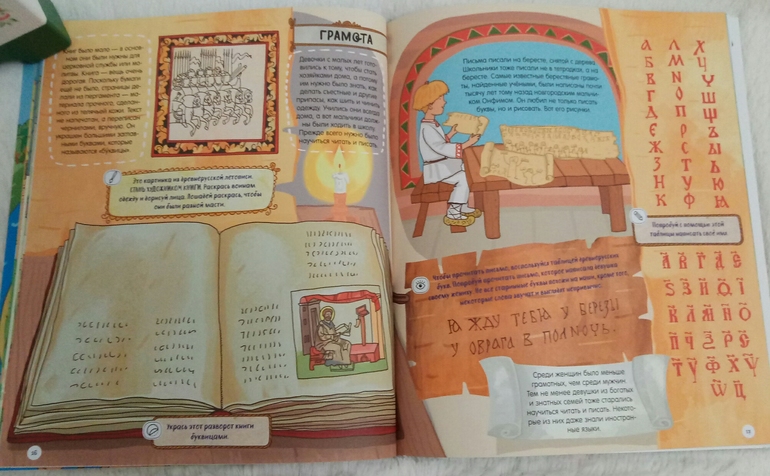 Книг было мало — в основ-
ном они были нужны для
церковной службы или мо-
литвы. Книга — вещь очень
дорогая. Поскольку бумаги
ещё не было, страницы де-
лали из пергамента — ма-
териала прочного, сделан-
ного из телячьей кожи. Текст
не печатали, а переписывали
чернилами, вручную. Он
украшен большими запла-
ными буквами, которые
называются «буквицы».
ГРАМОТА
Девочки с малых лет гото-
вились к тому, чтобы стать
хозяйками дома, а потом
им нужно было знать, как
делать съестные и другие
припасы, как шить и чинить
одежду. Учились они всегда
дома, а вот мальчики долж-
ны были ходить в школу.
Прежде всего нужно было
научиться читать и писать.
Это картинка из древнерусской летописи.
СТАНЬ ХУДОЖНИКОМ КНИГИ. Раскрась воинам
одежду и дорисуй лица. Лошадей раскрась, чтобы
они были разной масти.
Укрась этот разворот книги
буквицами.
16
Письма писали на бересте, снятой с дерева.
Школьники тоже писали не в тетрадях, а на
бересте. Самые известные берестяные грамо-
ты, найденные учёными, были написаны почти
тысячу лет тому назад новгородским мальчи-
ком Онфимом. Он любил не только писать
буквы, но и рисовать. Вот его рисунки.
А Л Х
Б М Ц
В Н Ч
Г О Ш
Д П Щ
Е Р Ъ
Ж С Ы
З Т Ь
И У
К Ф Ю
Попробуй с помощью этой
таблицы написать своё имя.
Чтобы прочитать письмо, воспользуйся таблицей древнерусских
букв. Попробуй прочитать письмо, которое написала девушка
своему жениху. Не все старинные буквы похожи на наши, кроме того,
некоторые слова звучат и выглядят непривычно.
ꙖЖДУ ТЕБꙖ У БЕРЕЗЫ
У ОВРАГА В ПОЛNОЧЬ.
Среди женщин было меньше
грамотных, чем среди мужчин.
Тем не менее девушки из богатых
и знатных семей тоже старались
научиться читать и писать. Некото-
рые из них даже знали иностран-
ные языки.